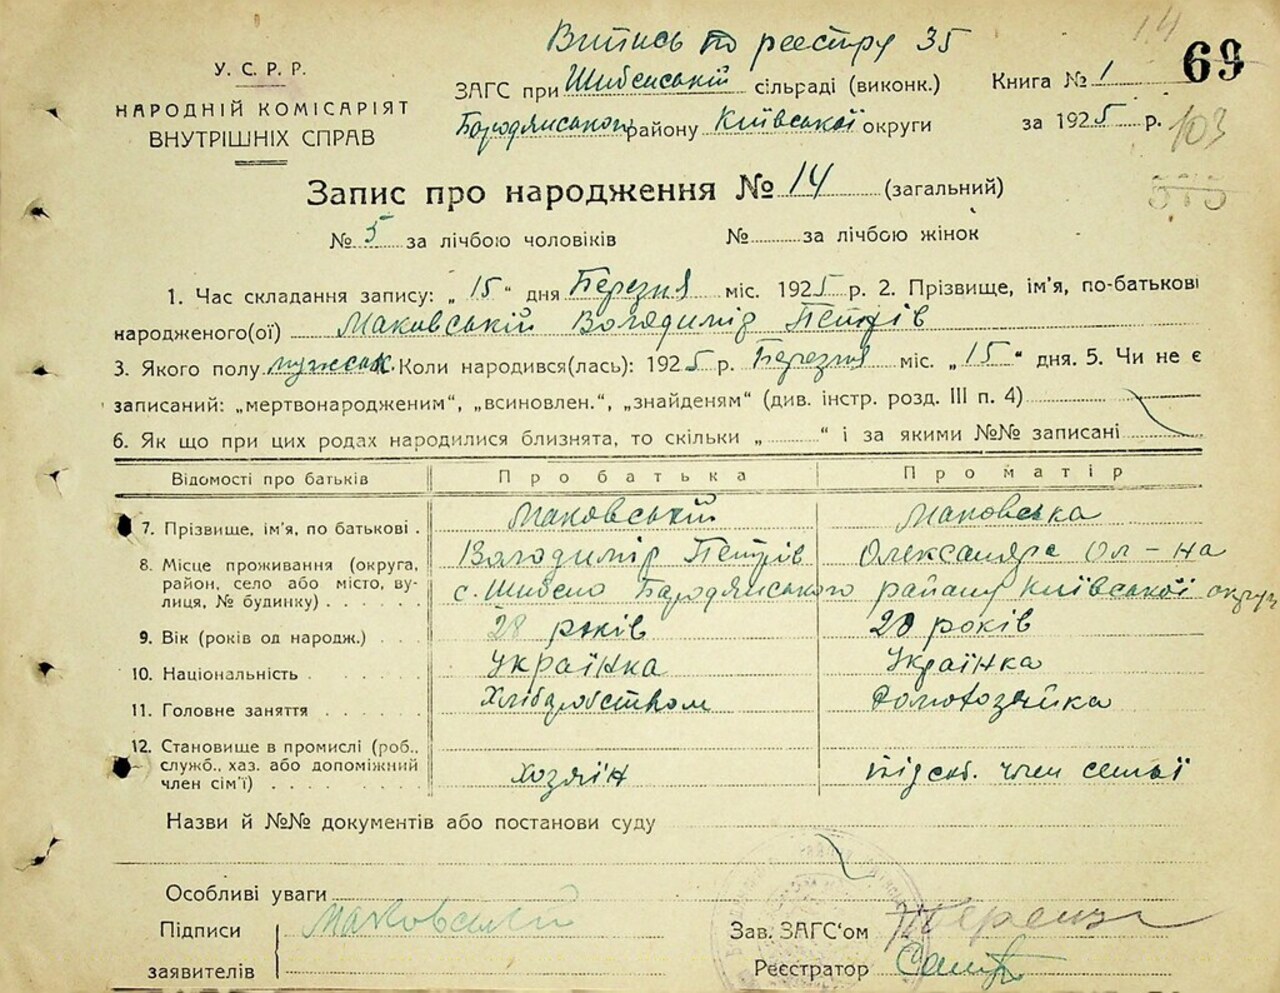 Витись по реєстру 35
14
69
У. С. Р. Р.
НАРОДНІЙ КОМІСАРІЯТ
ВНУТРІШНІХ СПРАВ
ЗАГС при Шибенській сільраді (виконк.)
Бородянського району Київської округи
Книга № 1
за 1925 р.
103
Запис про народження № 14 (загальний)
№ 5 за лічбою чоловіків № за лічбою жінок
1. Час складання запису: „ 15 “ дня Березня міс. 1925 р. 2. Прізвище, ім'я, по-батькові
народженого(ої) Маковський Володимір Петрів
3. Якого полу мужськ. Коли народився(лась): 1925 р. Березня міс. „ 15 “ дня. 5. Чи не є
записаний: „мертвонародженим“, „всиновлен.“, „знайденям“ (див. інстр. розд. III п. 4)
6. Як що при цих родах народилися близнята, то скільки „ “ і за якими №№ записані
Відомості про батьків Про батька Про матір
7. Прізвище, ім'я, по батькові . Маковській Маковська
Володимір Петрів Олександра Ол-на
8. Місце проживання (округа,
район, село або місто, ву-
лиця, № будинку) . . . . . . с. Шибено Бародянського району Київської округи
9. Вік (років од народж.) . . . 28 років 20 років
10. Національність . . . . . Українка Українка
11. Головне заняття . . . . . . Хліборобством домохозяйка
12. Становище в промислі (роб.,
служб., хаз. або допоміжний
член сім'ї) . . . . . . . . хозяїн підсоб. член семьї
Назви й №№ документів або постанови суду
Особливі уваги
Підписи Маковський
заявителів
Зав. ЗАГС‘ом
Реєстратор